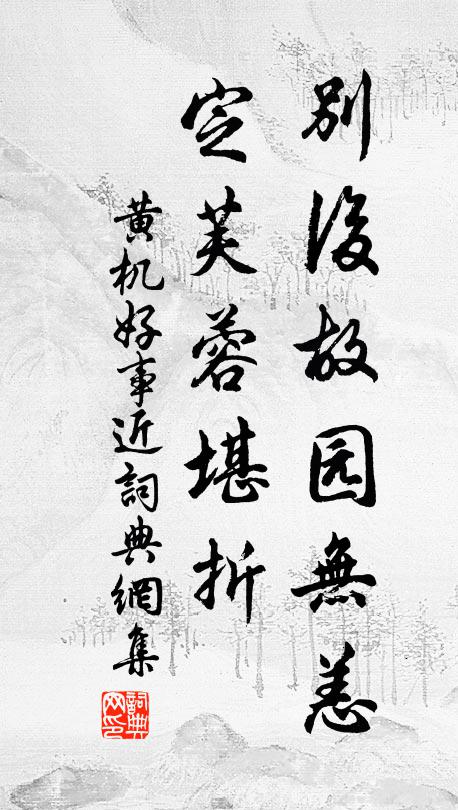 别後故园無恙
定芙蓉堪折
黄机好事近詞典網集
詞典网印